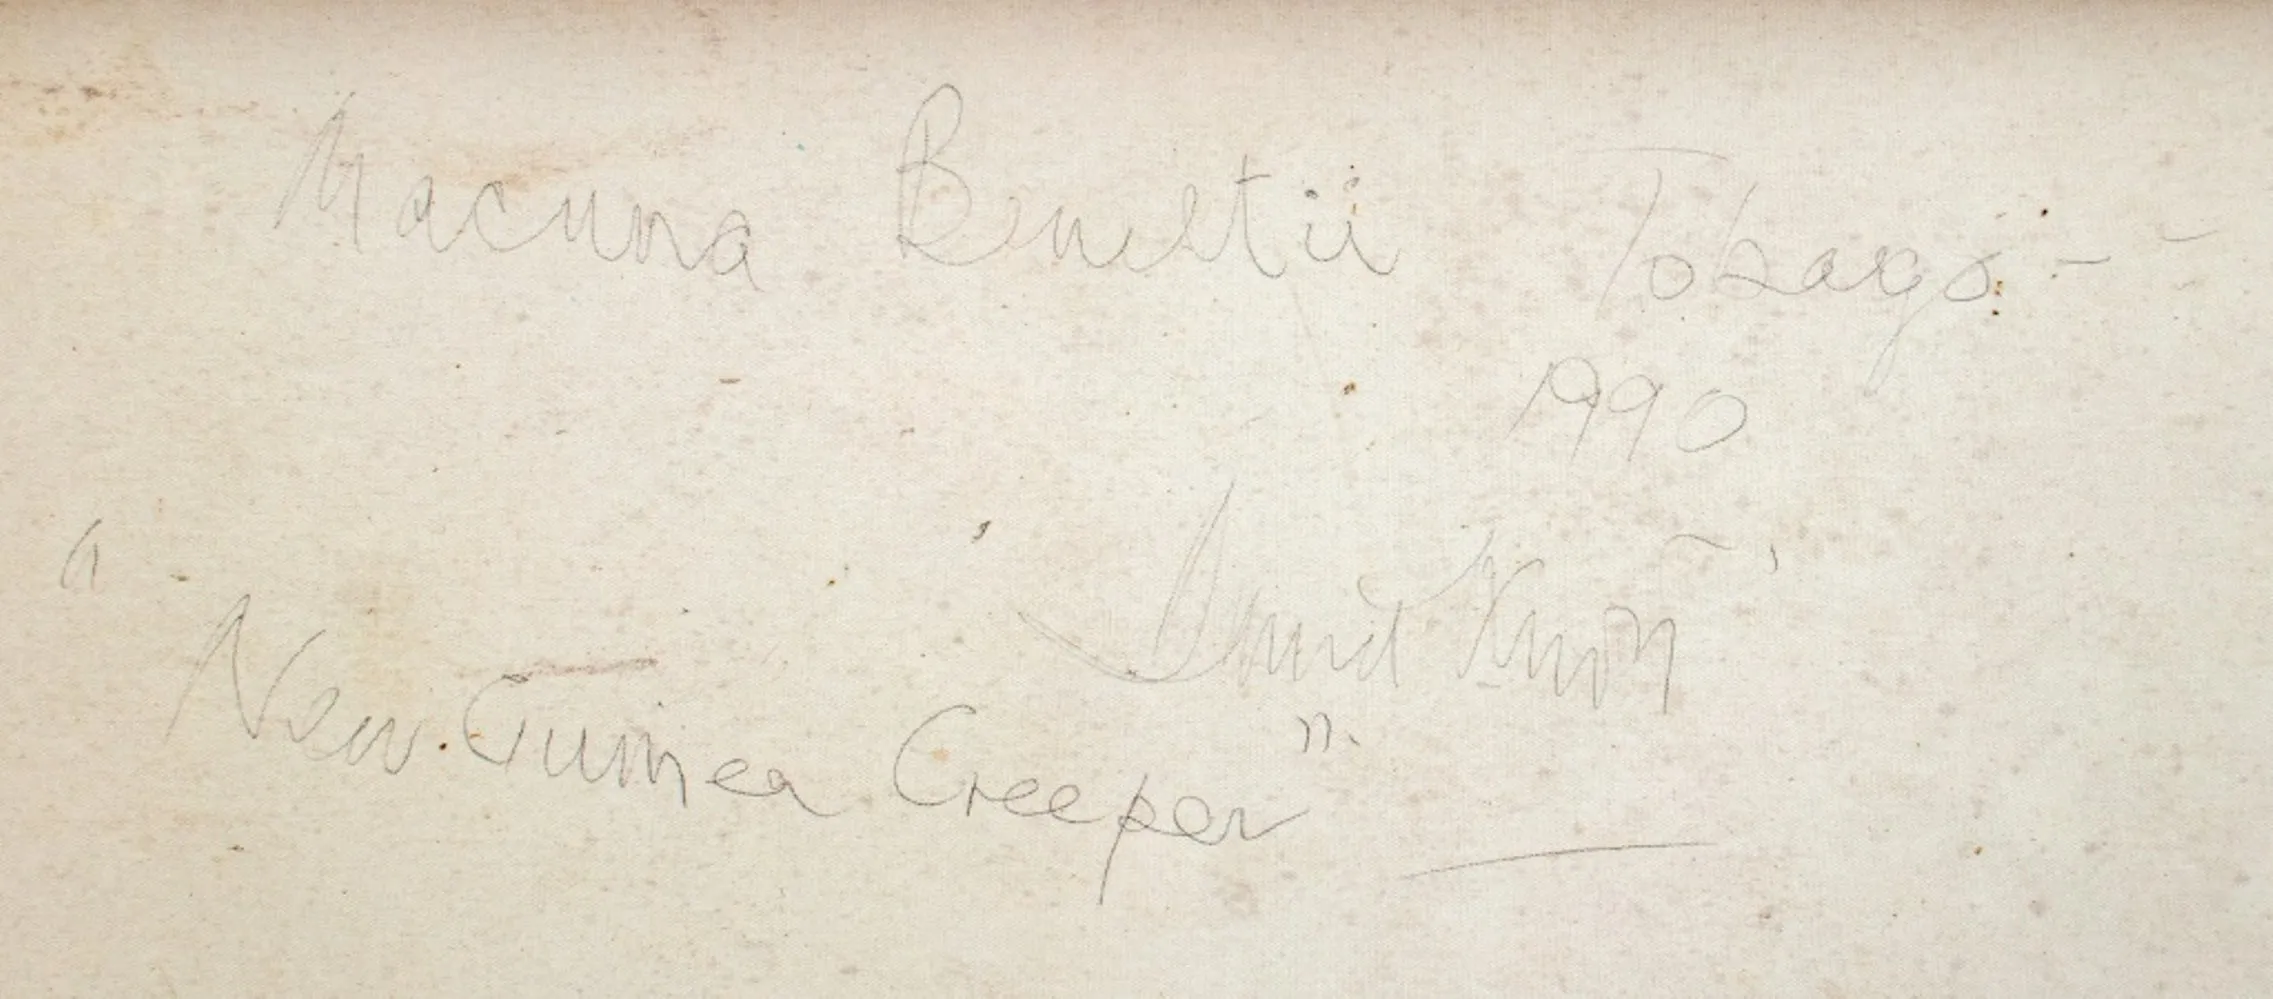 Macuna Benetii Tobago -
1990
David
"New Guinea Creeper".